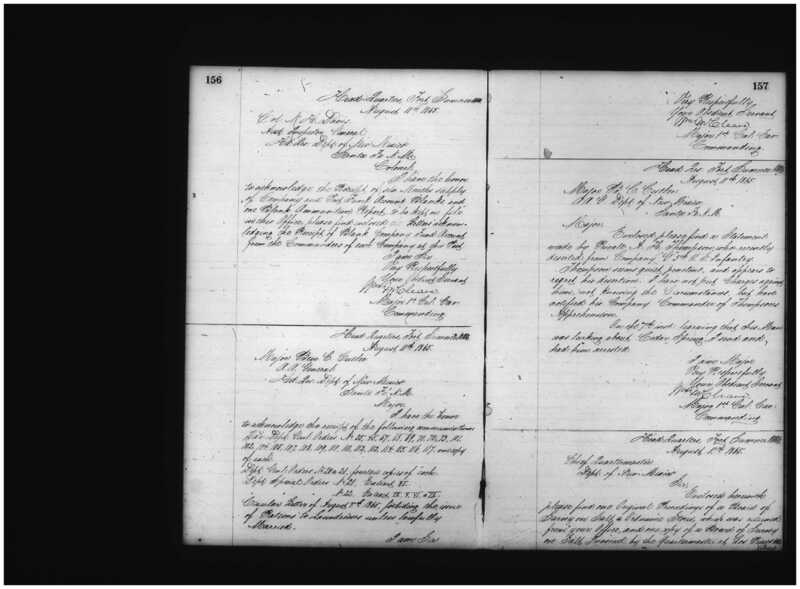 156
Head Quarters, Fort Sumner N.M.
August 11th 1865.
Col. N. H. Davis
Asst. Inspector General
Hd. Qrs. Dept. of New Mexico
Santa Fe N.M.
Colonel,
I have the honor
to acknowledge the Receipt of six Months supply
of Company and Post Fund Account Blanks and
one Blank Ammunition Report, to be kept on file
in this Office, please find enclosed Letters acknow-
ledging the Receipt of Blank Company Fund Account
from the Commanders of each Company at this Post
I am Sir
Very Respectfully
Your Obedient Servant
Wm McCleave
Major 1st Cal. Cav
Commanding
Head Quarters, Fort Sumner N.M.
August 11th 1865.
Major C. Cutler
A.A. General
Hd. Qrs. Dept. of New Mexico
Santa Fe N.M.
Major
I have the honor
to acknowledge the receipt of the following communications
of each.
Dept. Genl. Orders No. 20 & 21, fourteen copies of each
Dept. Special Orders No. 21. Extract
No. 22. Extract
Circular Letter of August 5th 1865 forbiding the issue
of Rations to Laundresses unless lawfully
Married.
I am Sir
157
Very Respectfully
Your Obedient Servant
Wm McCleave
Major 1st Cal. Cav
Commanding
Head Qrs. Fort Sumner N.M.
August 11th 1865
Major C. Cutler
A.A.G. Dept. of New Mexico
Santa Fe N.M.
Major
Enclosed please find a Statement
made by Private A. H. Thompson, who recently
deserted from Company G 5th U.S. Infantry.
Thompson seems quite penitent, and appears to
regret his desertion. I have not put Charges against
him, not knowing the Circumstances, but have
notified his Company Commander of Thompsons
Apprehension.
On the 7th inst. learning that this Man
was lurking about Cedar Spring I send and
had him arrested.
I am Major
Very Respectfully
Your Obedient Servant
Wm McCleave
Major 1st Cal. Cav.
Commanding
Head Quarters, Fort Sumner N.M.
August 1865.
Chief Quartermaster
Dept. of New Mexico
Sir
Enclosed herewith
please find one Original Proceedings of a Board of
Survey on Salt, & Ordnance Stores, which was returned
from your Office, and one copy of a Board of Survey
on Salt, by the Quartermaster at this Post